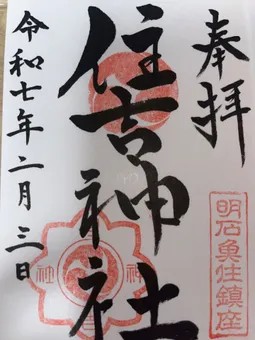 奉拝
住吉神社
令和七年二月三日
明石魚住鎮座